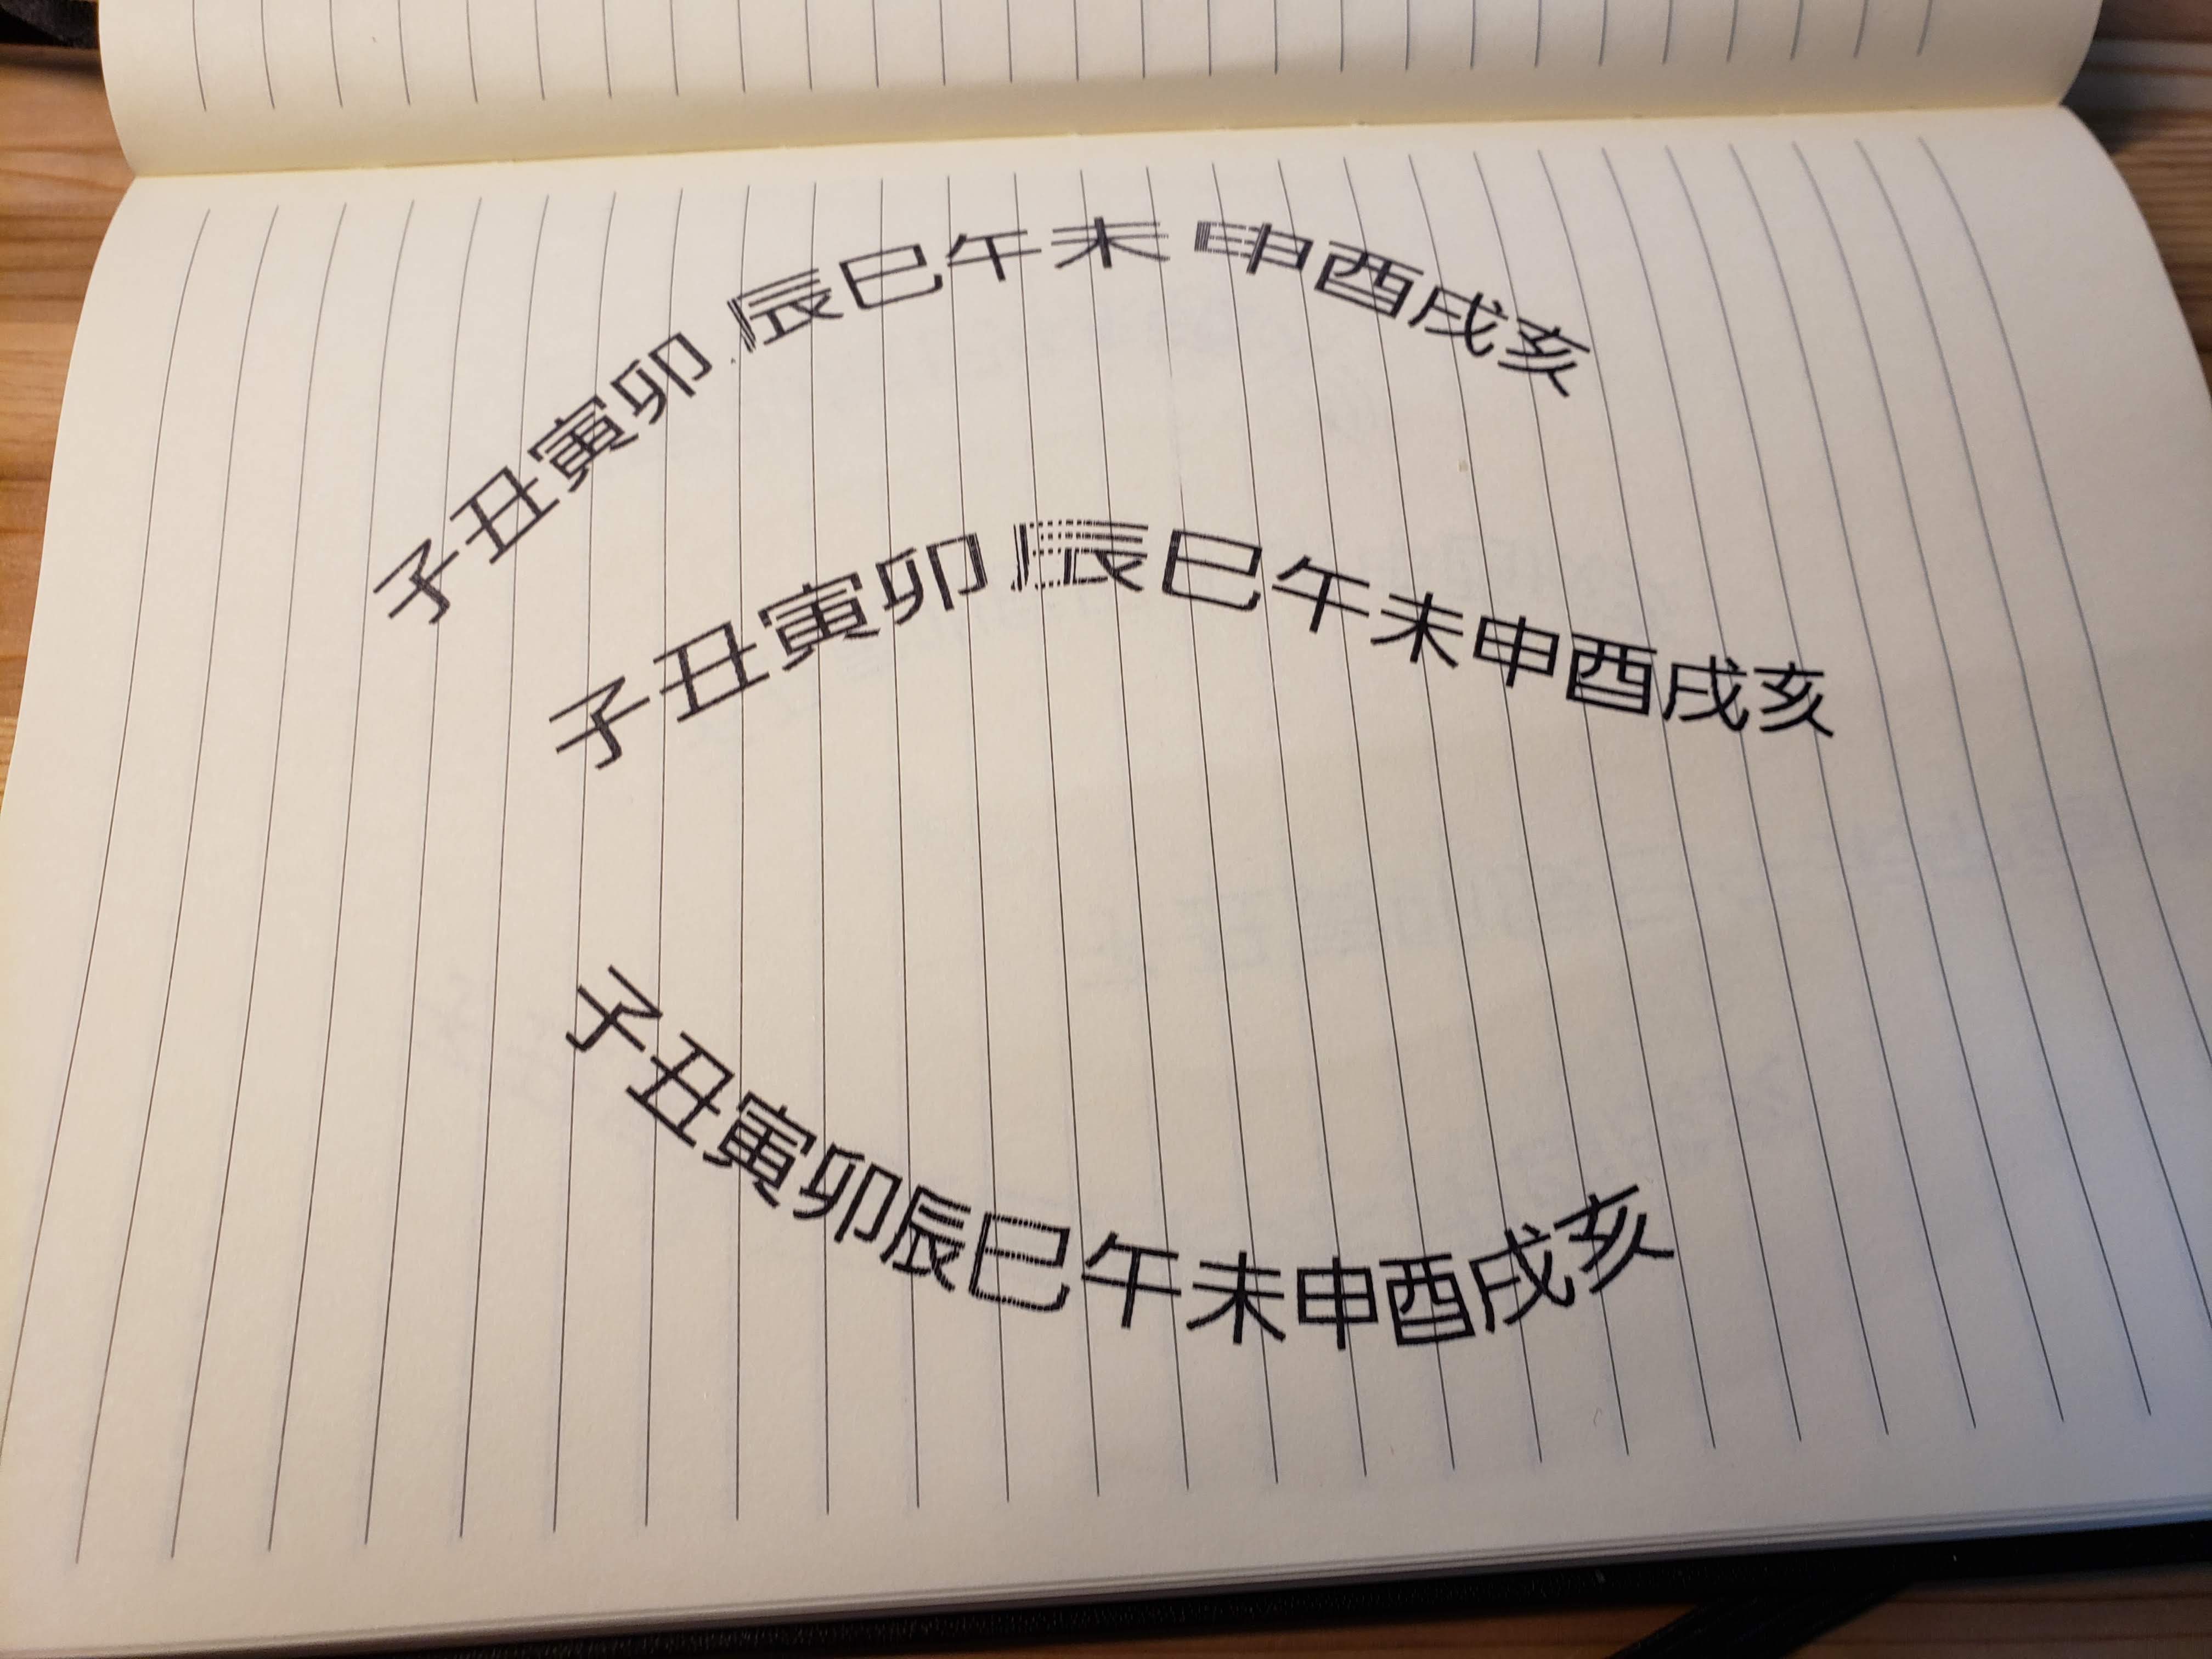 子丑寅卯辰巳午未申酉戌亥
子丑寅卯辰巳午未申酉戌亥
子丑寅卯辰巳午未申酉戌亥